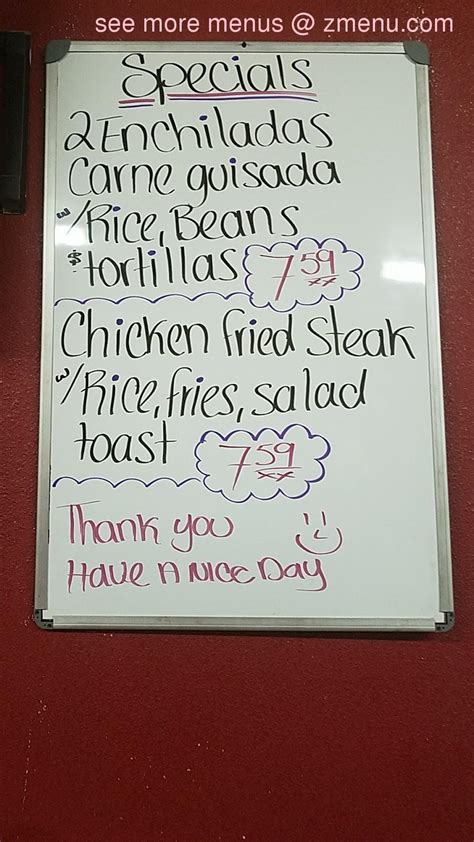 see more menus @ zmenu.com
Specials
2 Enchiladas
Carne guisada
w/Rice, Beans
$ tortillas 7 59 xx
Chicken fried Steak
w/Rice, fries, salad
toast 7 59 xx
Thank you
Have A Nice Day